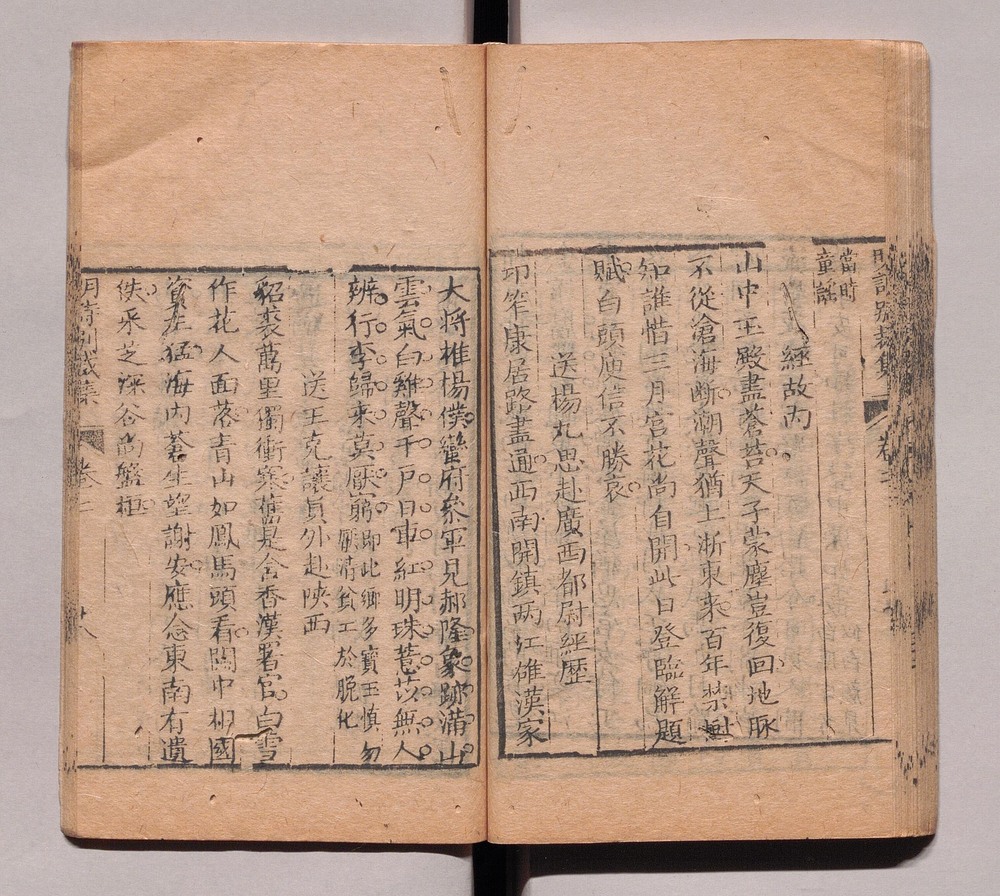 明詩別裁集 卷二
當時
童謠
經故內
山中玉殿盡蒼苔天子蒙塵豈復回地脉
不從滄海斷潮聲猶上浙東來百年禁樹
知誰惜三月宮花尚自開此日登臨解題
賦白頭庾信不勝哀
送楊九思赴廣西都尉經歷
邛笮康居路盡通西南開鎮兩江雄漢家
大將椎楊僕蠻府叅軍見郝隆象跡滿山
雲氣白雞聲千戶日車紅明珠薏苡無人
辨行李歸來莫厭窮
即此鄉多寶玉慎勿
厭清貧工於脫化
送王克讓員外赴陝西
貂裘萬里獨衝寒舊是含香漢署官白雪
作花人面落青山如鳳馬頭看關中相國
資王猛海內蒼生望謝安應念東南有遺
佚采芝深谷尚盤桓
明詩別裁集 卷二 十八